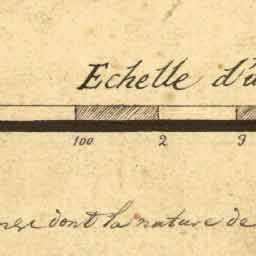 Echelle d'u
100 2 3
dont la nature de